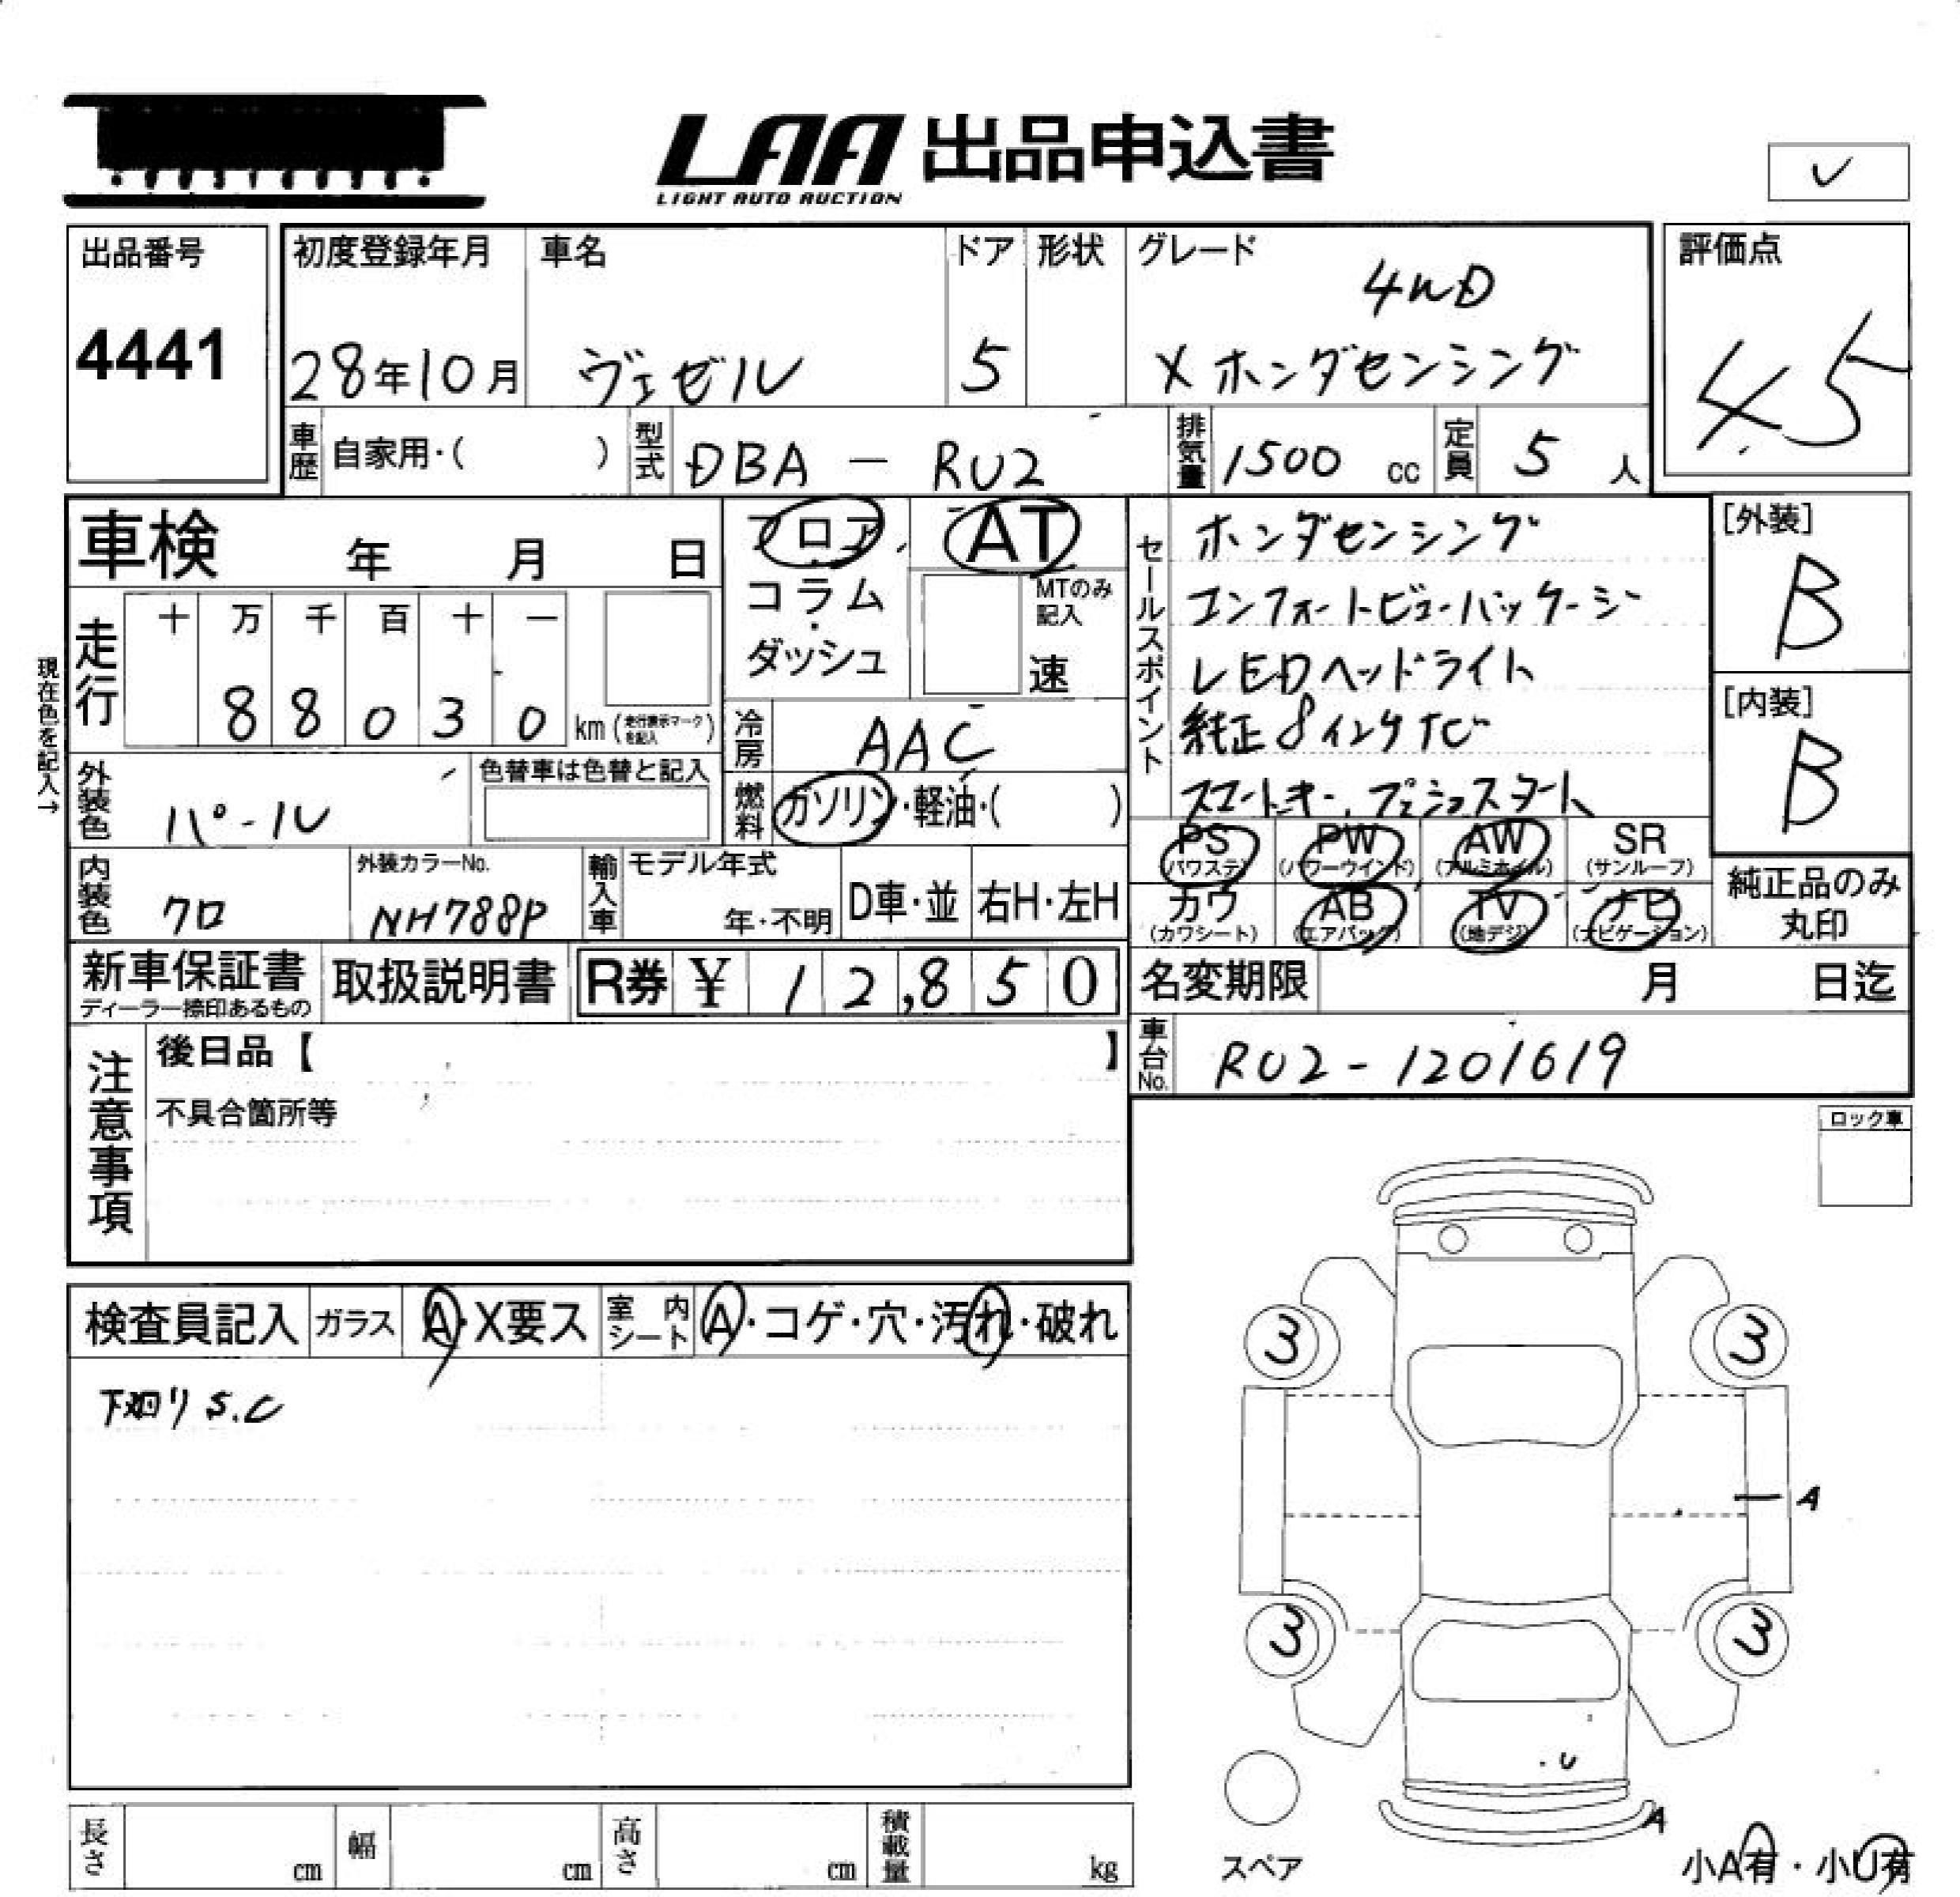 LAA 出品申込書
LIGHT AUTO AUCTION
出品番号
4441
初度登録年月
28年10月
車名
ヴェゼル
ドア
5
形状
グレード
4WD
X ホンダセンシング
評価点
4.5
車歴
自家用・( )
型式
DBA - RU2
排気量
1500 cc
定員
5 人
車検 年 月 日
フロア
コラム
ダッシュ
AT
MTのみ
記入
速
セールスポイント
ホンダセンシング
コンフォートビューパッケージ
LEDヘッドライト
純正8インチナビ
スマートキー、プッシュスタート
[外装]
B
[内装]
B
現在色を記入→
走行
十 万 千 百 十 一
8 8 0 3 0 km (走行表示マークを記入)
冷房
AAC
外装色
パール
色替車は色替と記入
燃料
ガソリン・軽油・( )
PS
(パワステ)
PW
(パワーウインド)
AW
(アルミホイル)
SR
(サンルーフ)
カワ
(カワシート)
AB
(エアバック)
TV
(地デジ)
ナビ
(ナビゲーション)
純正品のみ
丸印
内装色
クロ
外装カラーNo.
NH788P
輸入車
モデル年式
年・不明
D車・並
右H・左H
新車保証書
ディーラー捺印あるもの
取扱説明書
R券 ¥ 12,850
名変期限 月 日迄
車台No.
RU2-1201619
注意事項
後日品【 】
不具合箇所等
ロック車
検査員記入
ガラス
A・X要ス
室内
シート
A・コゲ・穴・汚れ・破れ
下廻りS.C
3
3
A
3
3
U
A
スペア
小A有・小U有
長さ cm
幅 cm
高さ cm
積載量 kg